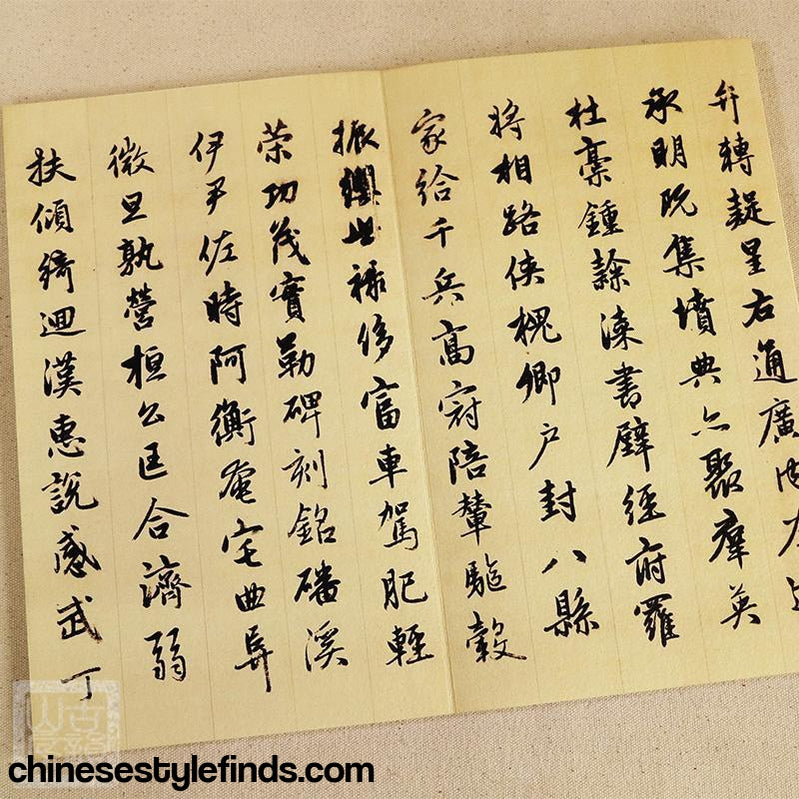 弁轉疑星右通廣内左
承明既集墳典亦聚羣英
杜稾鍾隸漆書壁經府羅
將相路俠槐卿户封八縣
家給千兵高冠陪輦驅轂
振纓世祿侈富車駕肥輕
策功茂實勒碑刻銘磻溪
伊尹佐時阿衡奄宅曲阜
微旦孰營桓公匡合濟弱
扶傾綺迴漢惠說感武丁
chinesestylefinds.com